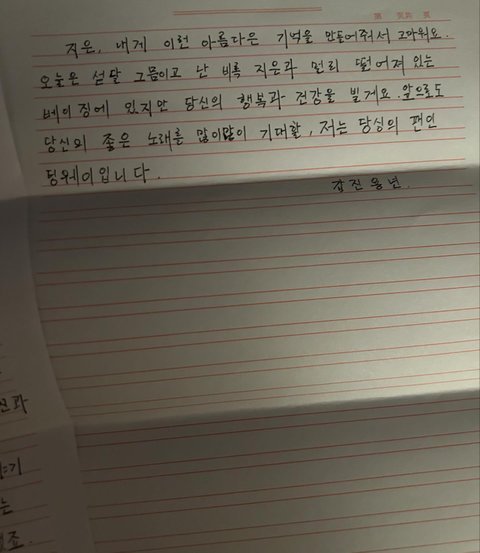 지은, 내게 이런 아름다은 기억을 만들어줘서 고마워요.
오늘은 섣달 그믐이고 난 비록 지은과 멀리 떨어져 있는
베이징에 있지만 당신의 행복과 건강을 빌게요. 앞으로도
당신의 좋은 노래를 많이많이 기대할, 저는 당싱의 팬인
딩웨이입니다.
갑진용년.
신과
는
죠.